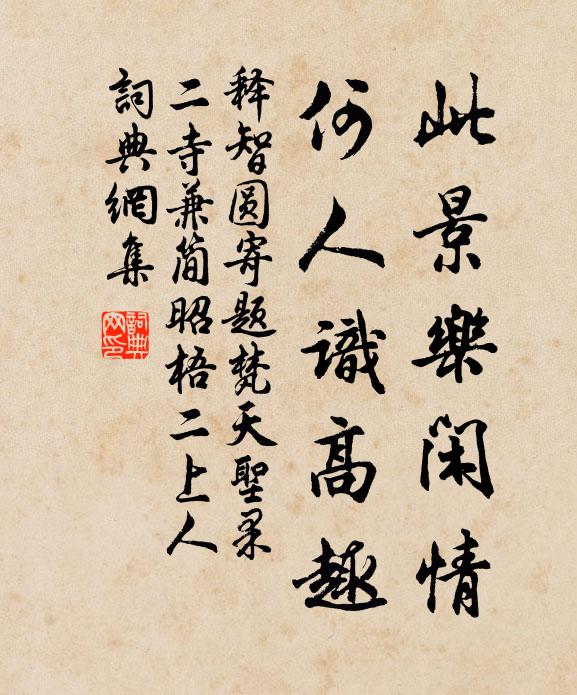 此景樂閑情
何人識高趣
释智圆寄题梵天聖果
二寺兼简昭梧二上人
詞典網集
詞典
网印